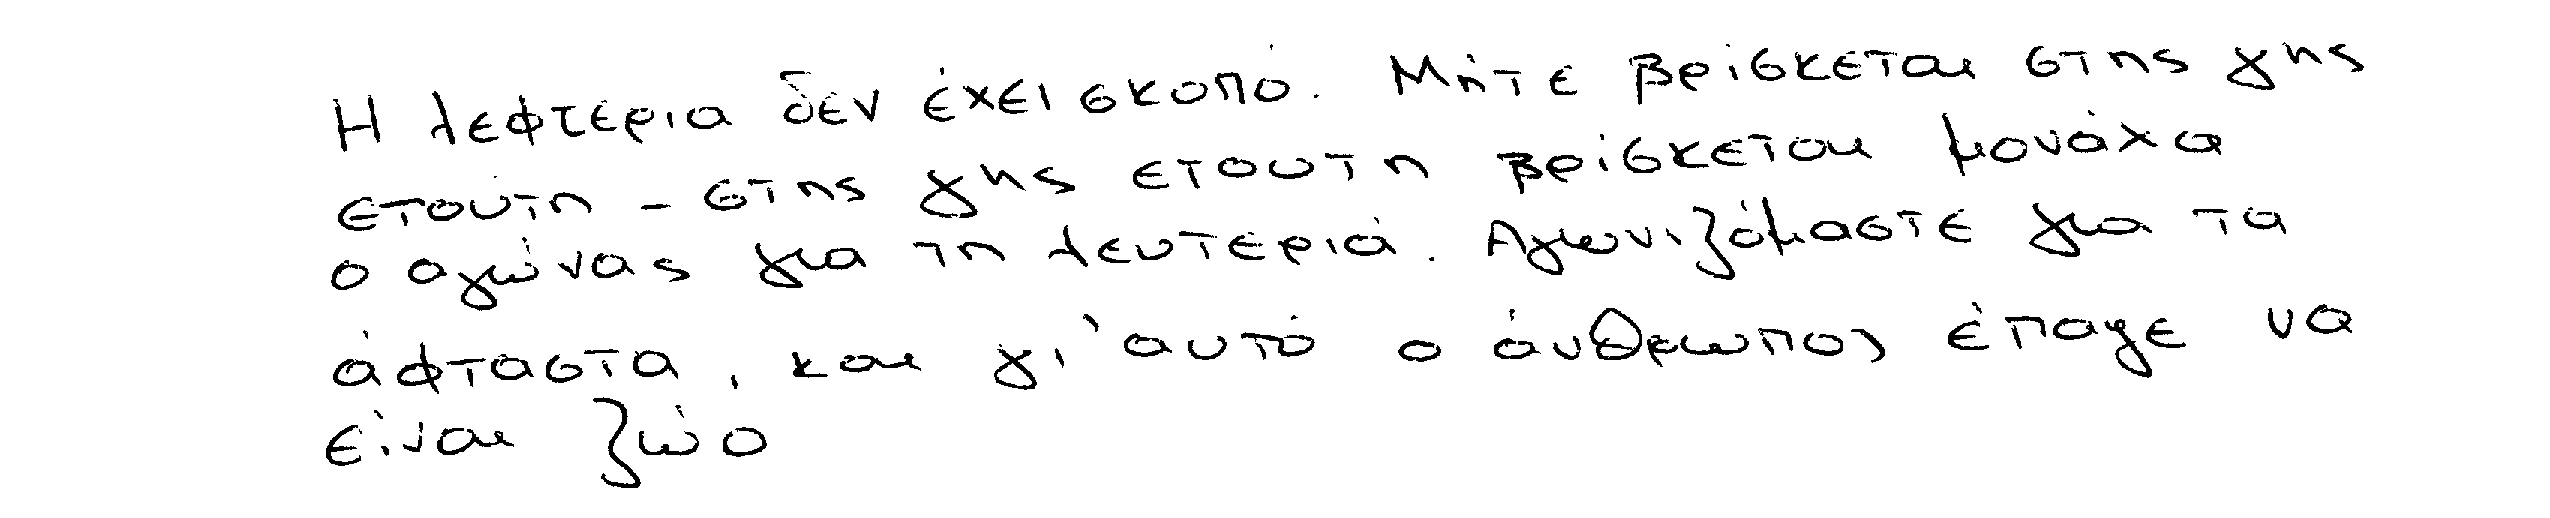 Η λεφτερια δεν έχει σκοπό. Μήτε βρίσκεται στης γης
ετουτη - στης γης ετουτη βρίσκεται μονάχα
ο αγώνας για τη λευτεριά. Αγωνιζόμαστε για τα
άφταστα, και γι' αυτό ο άνθρωπος έπαψε να
είναι ζώο